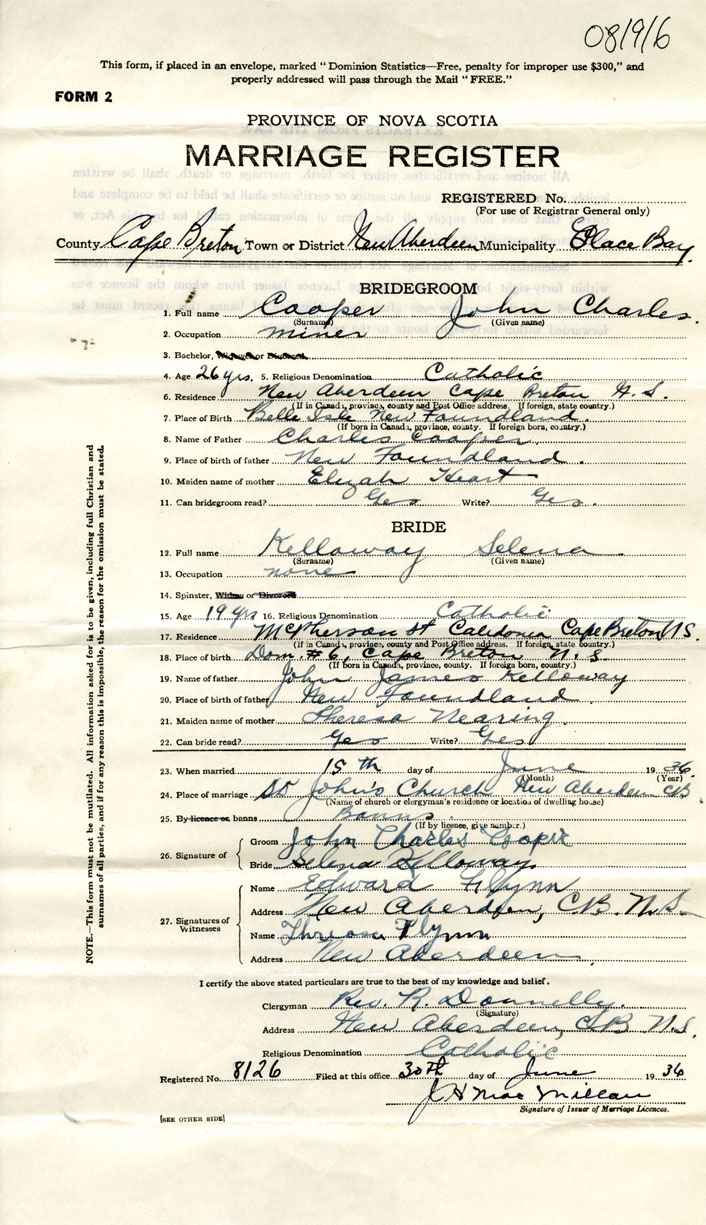 081916
This form, if placed in an envelope, marked "Dominion Statistics—Free, penalty for improper use $300," and
properly addressed will pass through the Mail "FREE."
FORM 2
PROVINCE OF NOVA SCOTIA
MARRIAGE REGISTER
REGISTERED No.
(For use of Registrar General only)
County Cape Breton Town or District New Aberdeen Municipality Glace Bay.
BRIDEGROOM
1. Full name Cooper John Charles.
(Surname) (Given name)
2. Occupation miner
3. Bachelor, Widower or Divorced
4. Age 26 yrs. 5. Religious Denomination Catholic
6. Residence New Aberdeen Cape Breton N.S.
(If in Canada, province, county and Post Office address. If foreign, state country.)
7. Place of Birth Belle Isle New Foundland.
(If born in Canada, province, county. If foreign born, country.)
8. Name of Father Charles Cooper.
9. Place of birth of father New Foundland.
10. Maiden name of mother Elizah Heart
11. Can bridegroom read? Yes Write? Yes.
BRIDE
12. Full name Kelloway Selena
(Surname) (Given name)
13. Occupation none
14. Spinster, Widow or Divorced
15. Age 19 yrs 16. Religious Denomination Catholic
17. Residence McPherson St Caledonia Cape Breton N.S.
(If in Canada, province, county and Post Office address. If foreign, state country.)
18. Place of birth Dom. #6, Cape Breton N.S.
(If born in Canada, province, county. If foreign born, country.)
19. Name of father John James Kelloway
20. Place of birth of father New Foundland.
21. Maiden name of mother Theresa Nearing.
22. Can bride read? Yes Write? Yes
23. When married 15th day of June 1936.
(Month) (Year)
24. Place of marriage St John's Church New Aberdeen CB
(Name of church or clergyman's residence or location of dwelling house)
25. By licence or banns Banns.
(If by licence, give number.)
26. Signature of
Groom John Charles Cooper
Bride Selena Kelloway
27. Signatures of Witnesses
Name Edward Flynn
Address New Aberdeen, C.B. N.S.
Name Theresa Flynn
Address New Aberdeen.
I certify the above stated particulars are true to the best of my knowledge and belief.
Clergyman Rev. R. Donnelly.
(Signature)
Address New Aberdeen, C.B. N.S.
Religious Denomination Catholic
Registered No. 8126 Filed at this office 30th day of June 1936
J H MacMillan
Signature of Issuer of Marriage Licences.
[SEE OTHER SIDE]
NOTE.—This form must not be mutilated. All information asked for is to be given, including full Christian and
surnames of all parties, and if for any reason this is impossible, the reason for the omission must be stated.